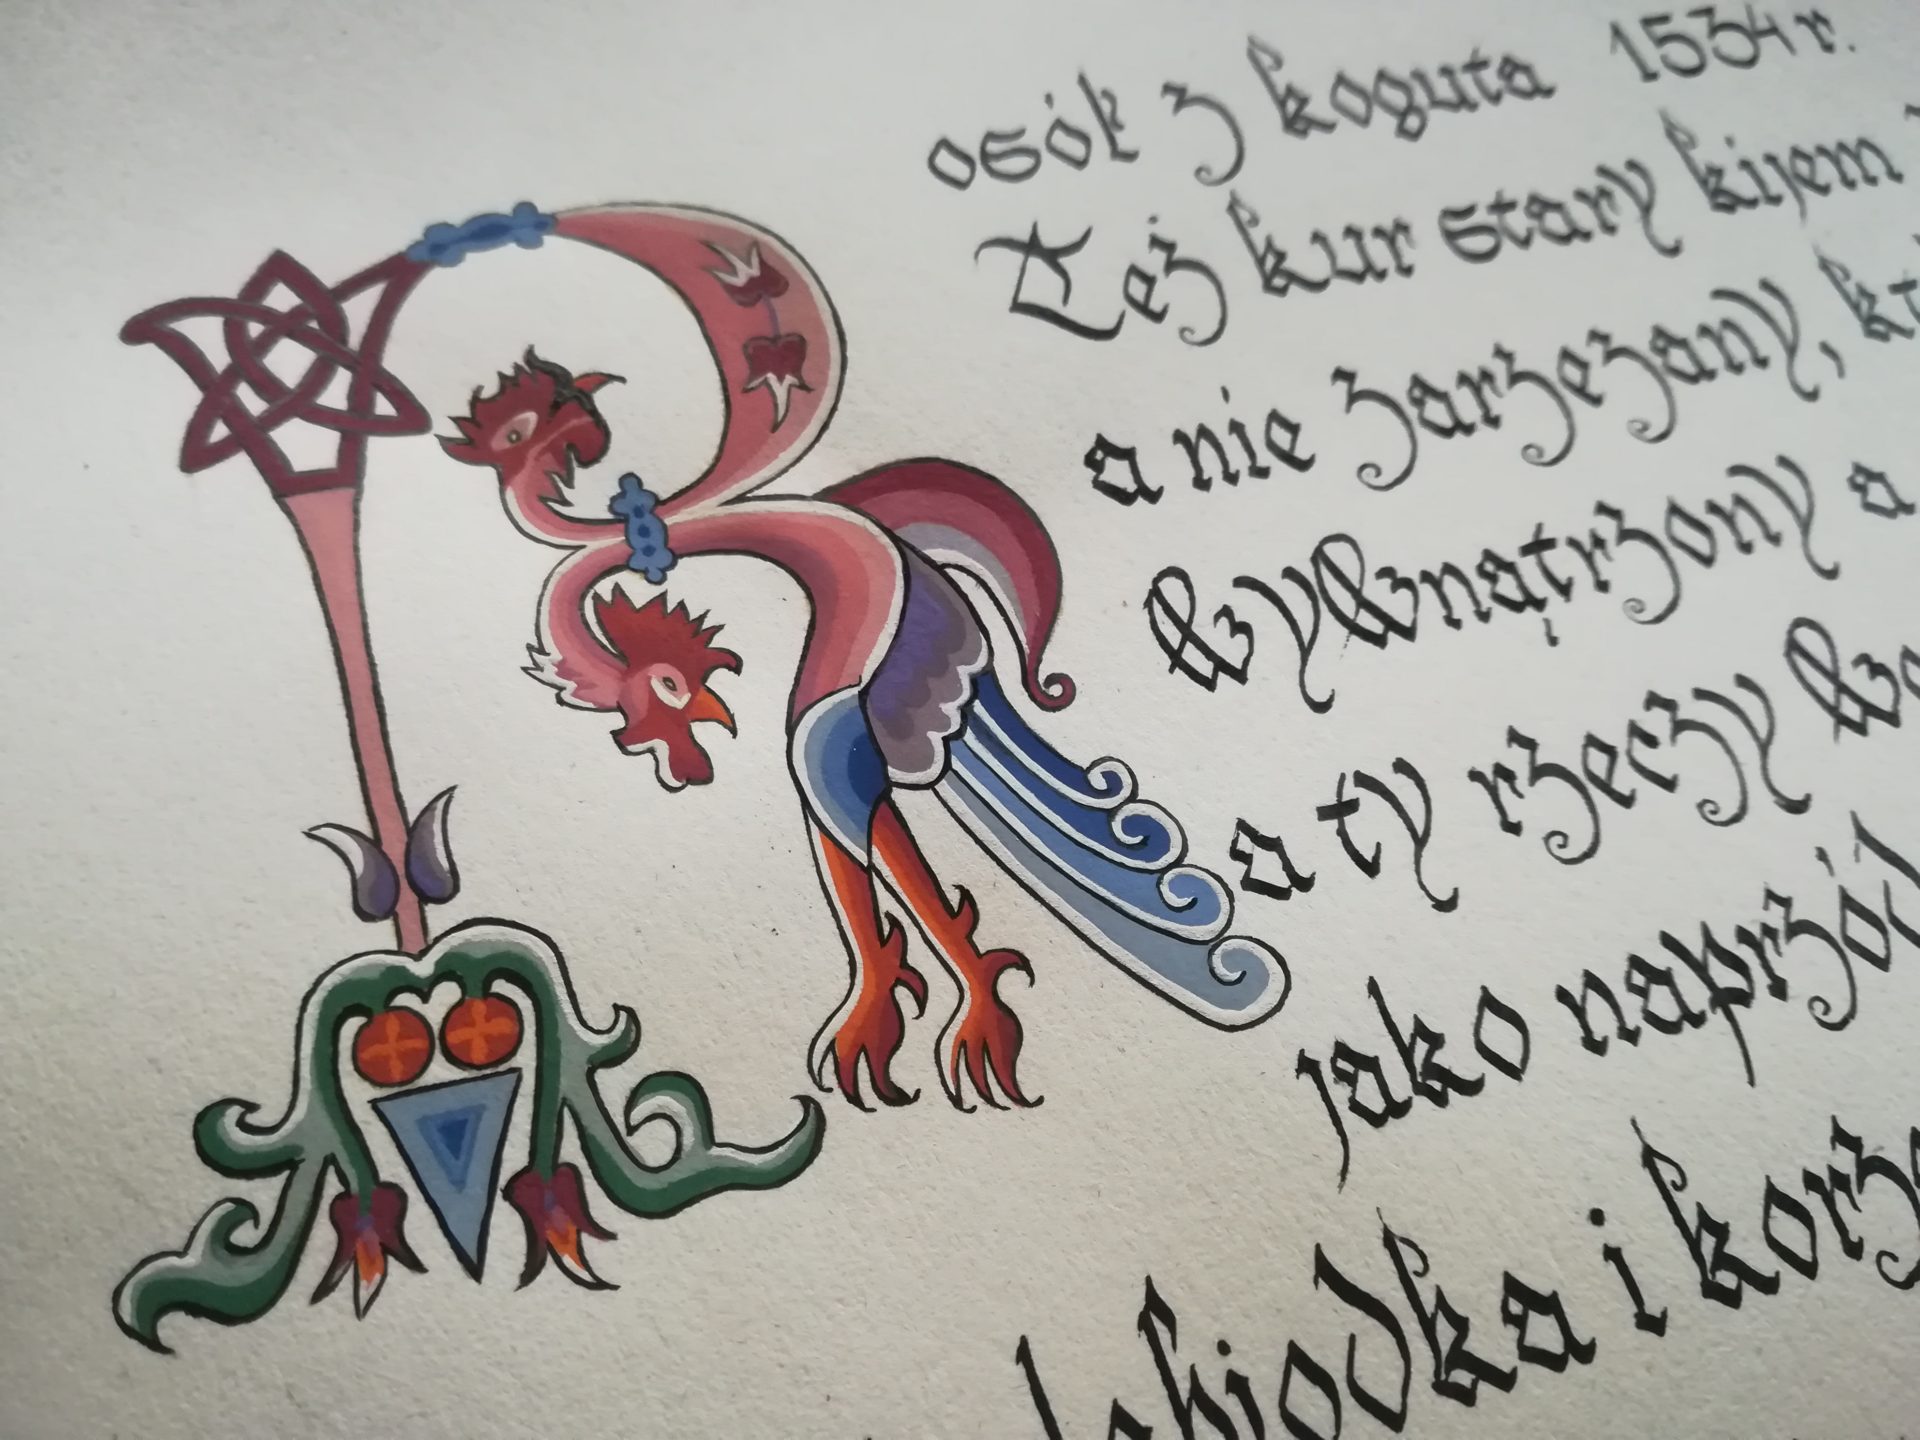 Rosók z koguta 1534 r.
Też kur stary kijem
a nie zarzezany, kt
wywnątrzony a
a ty rzeczy
jako naprzó
lebiodka i korz